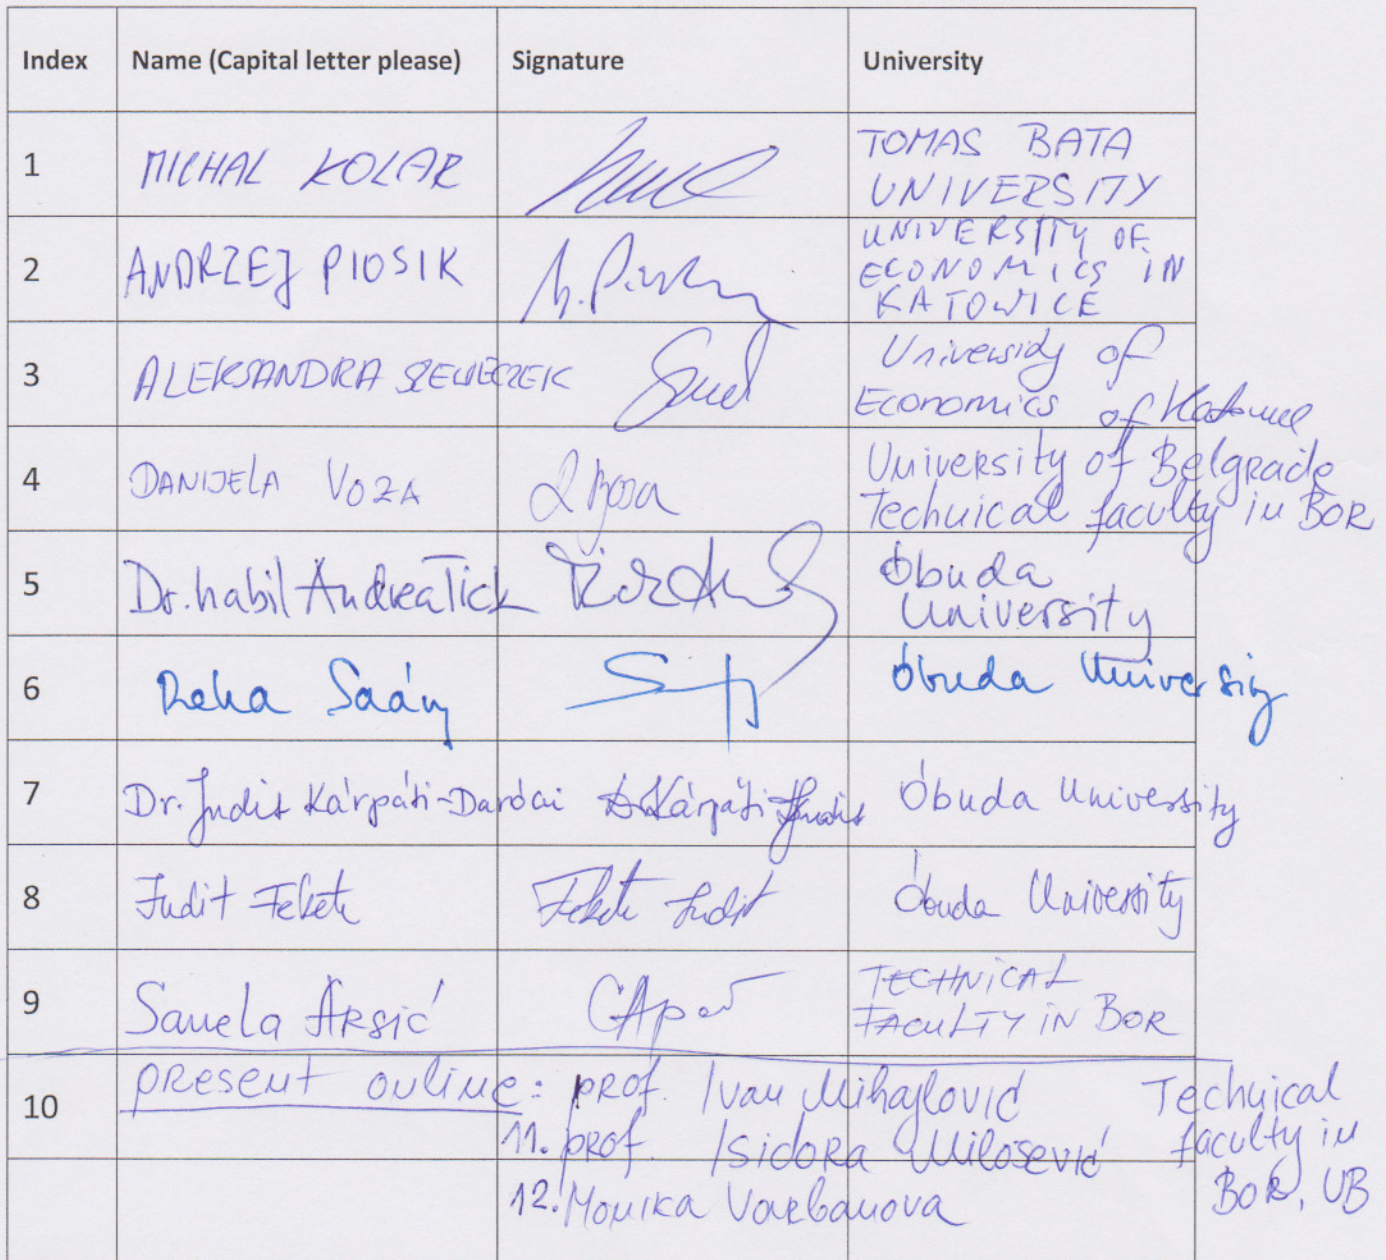 Index Name (Capital letter please) Signature University
1 MICHAL KOLAR TOMAS BATA
UNIVERSITY
2 ANDRZEJ PIOSIK A. UNIVERSITY OF
ECONOMICS IN
KATOWICE
3 ALEKSANDRA University of
Economics of Katowice
4 DANIJELA VOZA University of Belgrade
Technical faculty in BOR
5 Dr. habil Andrea Tick Óbuda
University
6 Reka Saáry Óbuda University
7 Dr. Judit Kárpáti-Daróczi Dr Kárpáti Judit Óbuda University
8 Judit Fekete Fekete Judit Óbuda University
9 Sanela Arsić TECHNICAL
FACULTY IN BOR
10 present online: prof. Ivan Mihajlović Technical
11. prof. Isidora Milošević faculty in
12. Monika Varbanova BOR, UB